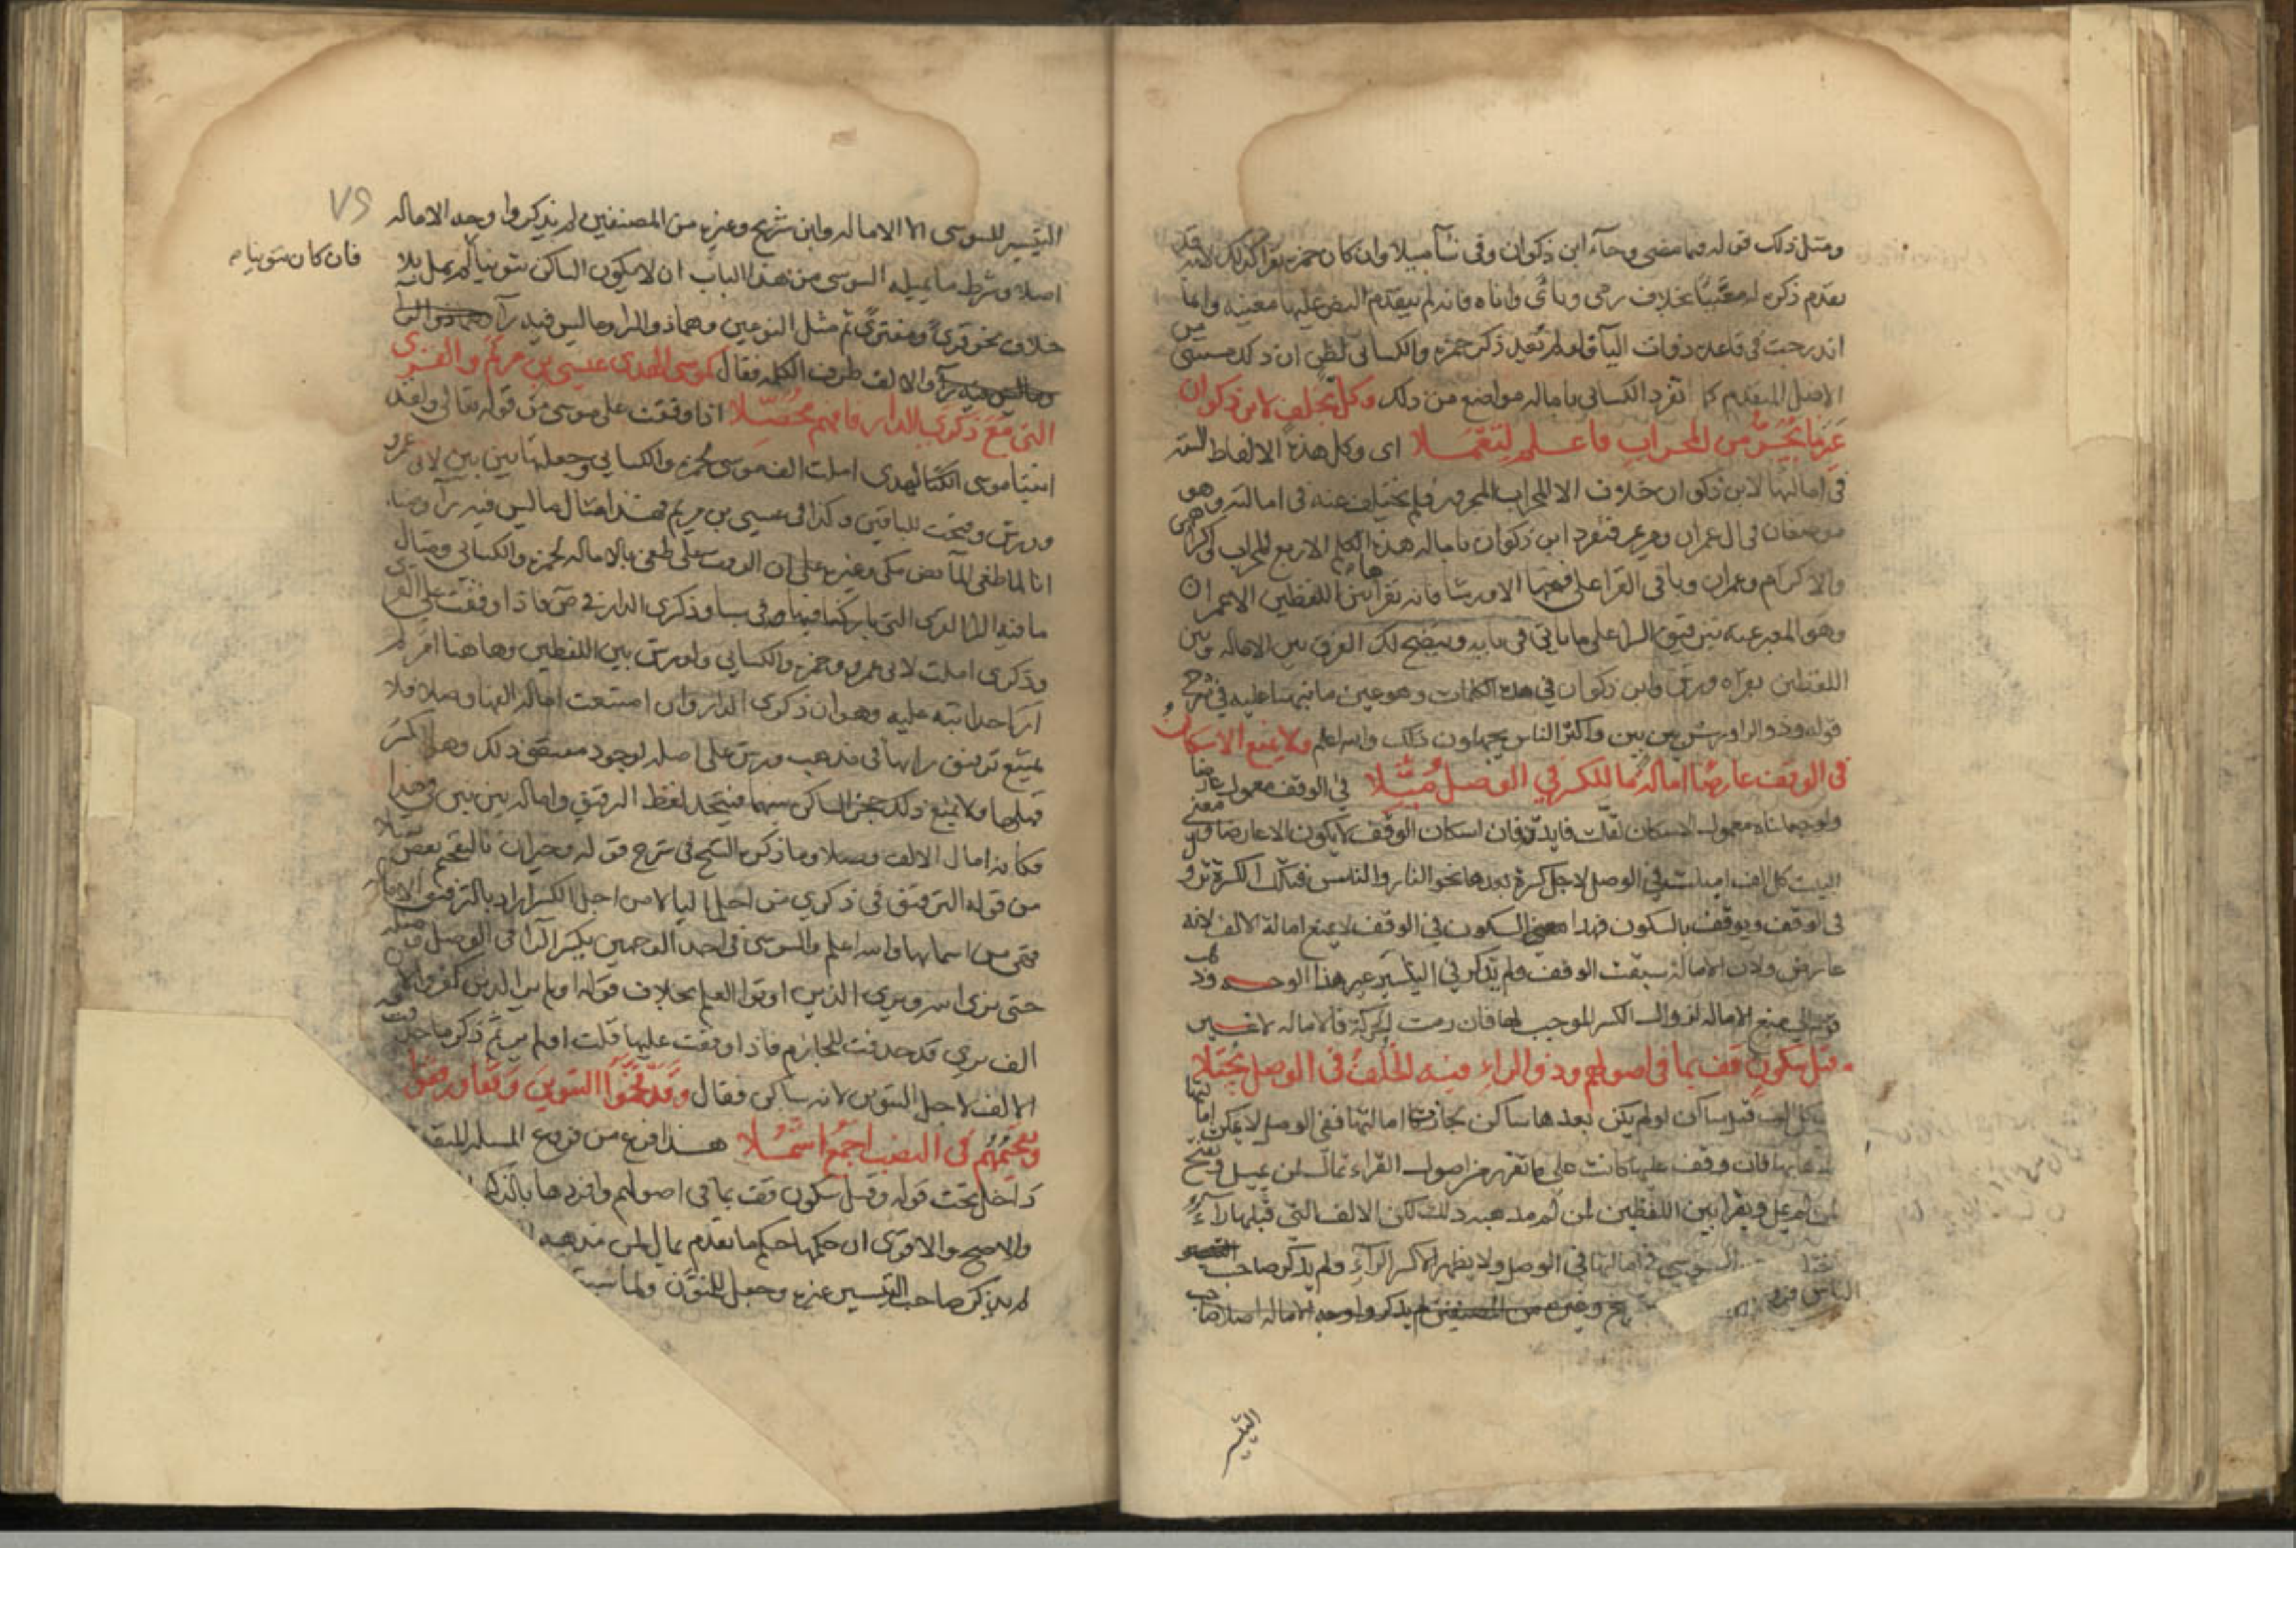 ومثل ذلك قوله فيما مضى وجاء ابن ذكوان وفي شاء ميلا وان كان حمزة يقرأ كذلك لانه قد
تقدم ذكره له معينا بخلاف رمى ونأى واناه فانه لم يتقدم النص عليها معينه وانما
اندرجت في قاعدة ذوات الياء فلو لم يعد ذكر حمزة والكسائي لظن ان ذلك مستثنى من
الاصل المتقدم كما تفرد الكسائي بامالة مواضع من ذلك وكل بخلف لابن ذكوان
غير ما يجر من المحراب فاعلم لتعملا اى وكل هذه الالفاظ الستة
في امالتها لابن ذكوان خلاف الا المحراب المجرور فلم يختلف عنه في امالته وهو
موضعان في ال عمران ومريم فتفرد ابن ذكوان بامالة هذه الكلم الاربع المحراب اكراههن
والاكرام وعمران وباقي القراء على فتحها الا ورشا فانه يقرأ بين اللفظين الا عمران
وهو المعبر عنه بترقيق الراء على ما ياتي في بابه ويتضح لك الفرق بين الامالة وبين
اللفظين بقراة ورش وابن ذكوان في هذه الكلمات وهو عين ما نبهنا عليه في شرح
قوله وذو الراء ورش بين بين واكثر الناس يجهلون ذلك والله اعلم ولا يمنع الاسكان
في الوقف عارضا امالة ما للكسر في الوصل ميلا في الوقف معمول عارضا
ولو جعلناه معمول الاسكان لقلت فايدته فان اسكان الوقف لا يكون الا عارضا ومعنى
البيت كل الف اميلت في الوصل لاجل كسرة بعدها نحو النار والناس فتلك الكسرة تزول
في الوقف ويوقف بالسكون فهذا السكون في الوقف لا يمنع امالة الالف لانه
عارض ولان الامالة سبقت الوقف ولم يذكر في التيسير غير هذا الوجه وذهب
قوم الى منع الامالة لزوال الكسر الموجب لها فان رمت الحركة فالامالة لا غير
وقبل سكون قف بما في اصولهم وذو الراء فيه الخلف في الوصل يجتلا
كل الف قبل ساكن لو لم يكن بعدها ساكن لجازت امالتها ففي الوصل لا يمكن امالتها
لذهابها فان وقف عليها كانت على ما تقرر من اصول القراء تمال لمن يميل وتفتح
لمن لم يمل ويقرأ بين اللفظين لمن لم مذهبه ذلك لكن الالف التي قبلها راء
السوسي في امالتها في الوصل ولا يظهر الا كسر الراء ولم يذكر صاحب
وغيره من المصنفين لم يذكروا وجه الامالة اصلا
التيسير
٧٩
التيسير للسوسى الا الامالة وابن شريح وغيره من المصنفين لم يذكروا وجه الامالة
فان كان تنوينا
اصلا وشرط ما يميله السوسى من هذا الباب ان لا يكون الساكن تنوينا لم يمل بلا
خلاف نحو قرى ومفترى ثم مثل النوعين وهما ذو الراء وما ليس فيه راء
والالف طرف الكلمة فقال كموسى الهدى عيسى بن مريم والقرى
التى مع ذكرى الدار فافهم محصلا اذا وقفت على موسى من قوله تعالى ولقد
اتينا موسى الكتاب الهدى املت الف موسى لحمزة والكسائي وجعلتها بين بين لابي عمرو
وورش وفتحت للباقين وكذا في عيسى بن مريم فهذا مثال ما ليس فيه راء ومثله
انا لما طغى الماء نص مكي وغيره على ان الوقف على طغى بالامالة لحمزة والكسائي ومثال
ما فيه الراء القرى التي باركنا فيها في سبا وذكرى الدار في ص فاذا وقفت على القرى
وذكرى املت لابي عمرو وحمزة والكسائي ولورش بين اللفظين وهاهنا امر لم
ار احدا نبه عليه وهو ان ذكرى الدار وان امتنعت امالة الفها وصلا فلا
يمتنع ترقيق رائها في مذهب ورش على اصله لوجود مقتضى ذلك وهو الكسر
قبلها ولا يمنع ذلك حجز الساكن بينهما فيتحد لفظ الترقيق وامالة بين بين في هذا
فكانه امال الالف وصلا وما ذكره الشيخ في شرح قوله وحيران بالتفخيم بعض
من قوله الترقيق في ذكرى من اجل الياء لا من اجل الكسر اراد بالترقيق الامالة
والله اعلم والسوسى في احد الوجهين يكسر الراء في الوصل
حتى نرى الله ويرى الذين اوتوا العلم بخلاف قوله اولم ير الذين كفروا لان
الف يرى قد حذفت للجازم فاذا وقفت عليها قلت اولم ير ثم ذكر ما حذفت منه
الالف لاجل التنوين لانه ساكن فقال وقد فخموا التنوين وقفا ورققوا
وتفخيمهم في النصب اجمع اشملا هذا فرع من فروع المسئلة المتقدمة
داخل تحت قوله وقبل سكون قف بما في اصولهم وافردها بالذكر
والاصح والاقوى ان حكمها حكم ما تقدم يمال لمن مذهبه
لم يذكر صاحب التيسير غيره وجعل للمنون ولما سبق